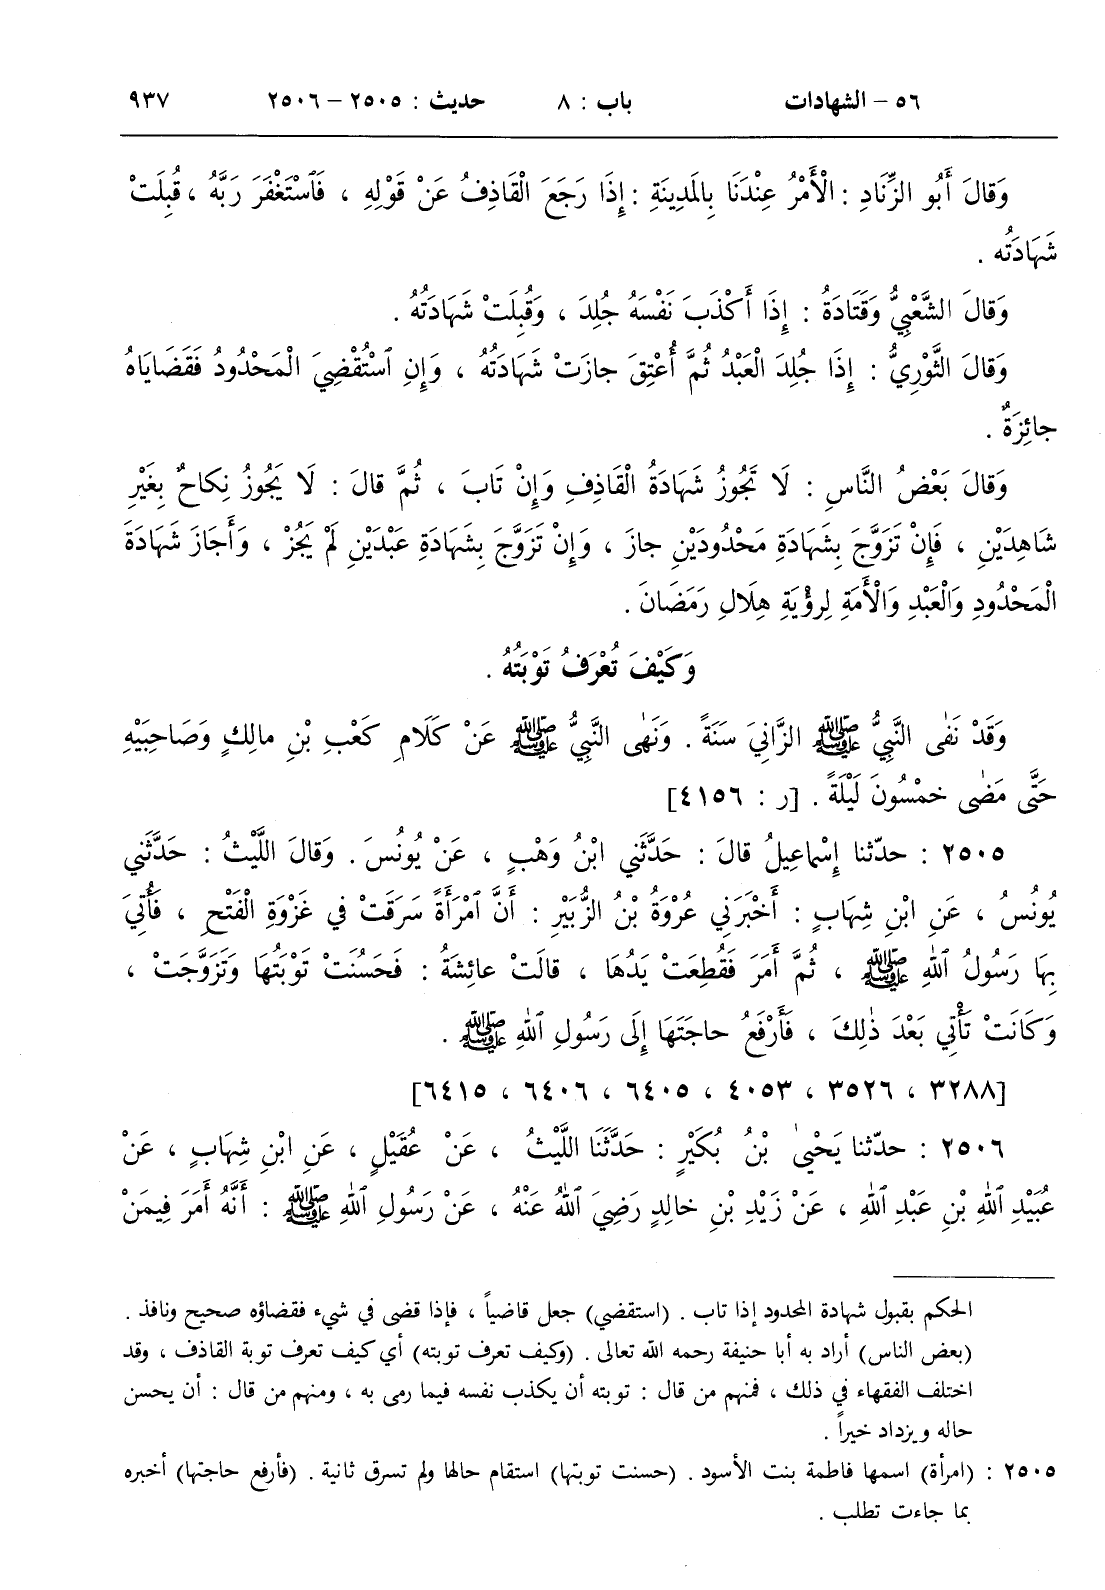 ٥٦ – الشهادات باب : ٨ حديث : ٢٥٠٥ – ٢٥٠٦ ٩٣٧
وَقالَ أَبُو الزِّنَادِ : الْأَمْرُ عِنْدَنَا بِالمَدِينَةِ : إِذَا رَجَعَ الْقَاذِفُ عَنْ قَوْلِهِ ، فَٱسْتَغْفَرَ رَبَّهُ ، قُبِلَتْ
شَهَادَتُه .
وَقالَ الشَّعْبِيُّ وَقَتَادَةُ : إِذَا أَكْذَبَ نَفْسَهُ جُلِدَ ، وَقُبِلَتْ شَهَادَتُهُ .
وَقالَ الثَّوْرِيُّ : إِذَا جُلِدَ الْعَبْدُ ثُمَّ أُعْتِقَ جازَتْ شَهَادَتُهُ ، وَإِنِ ٱسْتُقْضِيَ الْمَحْدُودُ فَقَضَايَاهُ
جائِزَةٌ .
وَقالَ بَعْضُ النَّاسِ : لَا تَجُوزُ شَهَادَةُ الْقَاذِفِ وَإِنْ تَابَ ، ثُمَّ قالَ : لَا يَجُوزُ نِكاحٌ بِغَيْرِ
شَاهِدَيْنِ ، فَإِنْ تَزَوَّجَ بِشَهَادَةِ مَحْدُودَيْنِ جازَ ، وَإِنْ تَزَوَّجَ بِشَهَادَةِ عَبْدَيْنِ لَمْ يَجُزْ ، وَأَجَازَ شَهَادَةَ
الْمَحْدُودِ وَالْعَبْدِ وَالْأَمَةِ لِرُؤْيَةِ هِلَالِ رَمَضَانَ .
وَكَيْفَ تُعْرَفُ تَوْبَتُهُ .
وَقَدْ نَفٰى النَّبِيُّ ﷺ الزَّانِيَ سَنَةً . وَنَهٰى النَّبِيُّ ﷺ عَنْ كَلَامِ كَعْبِ بْنِ مالِكٍ وَصَاحِبَيْهِ
حَتَّى مَضٰى خَمْسُونَ لَيْلَةً . [ر : ٤١٥٦]
٢٥٠٥ : حدّثنا إِسْماعِيلُ قالَ : حَدَّثَنِي ابْنُ وَهْبٍ ، عَنْ يُونُسَ . وَقالَ اللَّيْثُ : حَدَّثَنِي
يُونُسُ ، عَنِ ابْنِ شِهَابٍ : أَخْبَرَنِي عُرْوَةُ بْنُ الزُّبَيْرِ : أَنَّ ٱمْرَأَةً سَرَقَتْ في غَزْوَةِ الْفَتْحِ ، فَأُتِيَ
بِهَا رَسُولُ ٱللهِ ﷺ ، ثُمَّ أَمَرَ فَقُطِعَتْ يَدُهَا ، قالَتْ عائِشَةُ : فَحَسُنَتْ تَوْبَتُهَا وَتَزَوَّجَتْ ،
وَكَانَتْ تَأْتِي بَعْدَ ذٰلِكَ ، فَأَرْفَعُ حاجَتَهَا إِلَى رَسُولِ ٱللهِ ﷺ .
[٣٢٨٨ ، ٣٥٢٦ ، ٤٠٥٣ ، ٦٤٠٥ ، ٦٤٠٦ ، ٦٤١٥]
٢٥٠٦ : حدّثنا يَحْيىٰ بْنُ بُكَيْرٍ : حَدَّثَنَا اللَّيْثُ ، عَنْ عُقَيْلٍ ، عَنِ ابْنِ شِهَابٍ ، عَنْ
عُبَيْدِ ٱللهِ بْنِ عَبْدِ ٱللهِ ، عَنْ زَيْدِ بْنِ خالِدٍ رَضِيَ ٱللهُ عَنْهُ ، عَنْ رَسُولِ ٱللهِ ﷺ : أَنَّهُ أَمَرَ فِيمَنْ
الحكم بقبول شهادة المحدود إذا تاب . (استقضي) جعل قاضياً ، فإذا قضى في شيء فقضاؤه صحيح ونافذ .
(بعض الناس) أراد به أبا حنيفة رحمه الله تعالى . (وكيف تعرف توبته) أي كيف تعرف توبة القاذف ، وقد
اختلف الفقهاء في ذلك ، فمنهم من قال : توبته أن يكذب نفسه فيما رمى به ، ومنهم من قال : أن يحسن
حاله ويزداد خيراً .
٢٥٠٥ : (امرأة) اسمها فاطمة بنت الأسود . (حسنت توبتها) استقام حالها ولم تسرق ثانية . (فأرفع حاجتها) أخبره
بما جاءت تطلب .